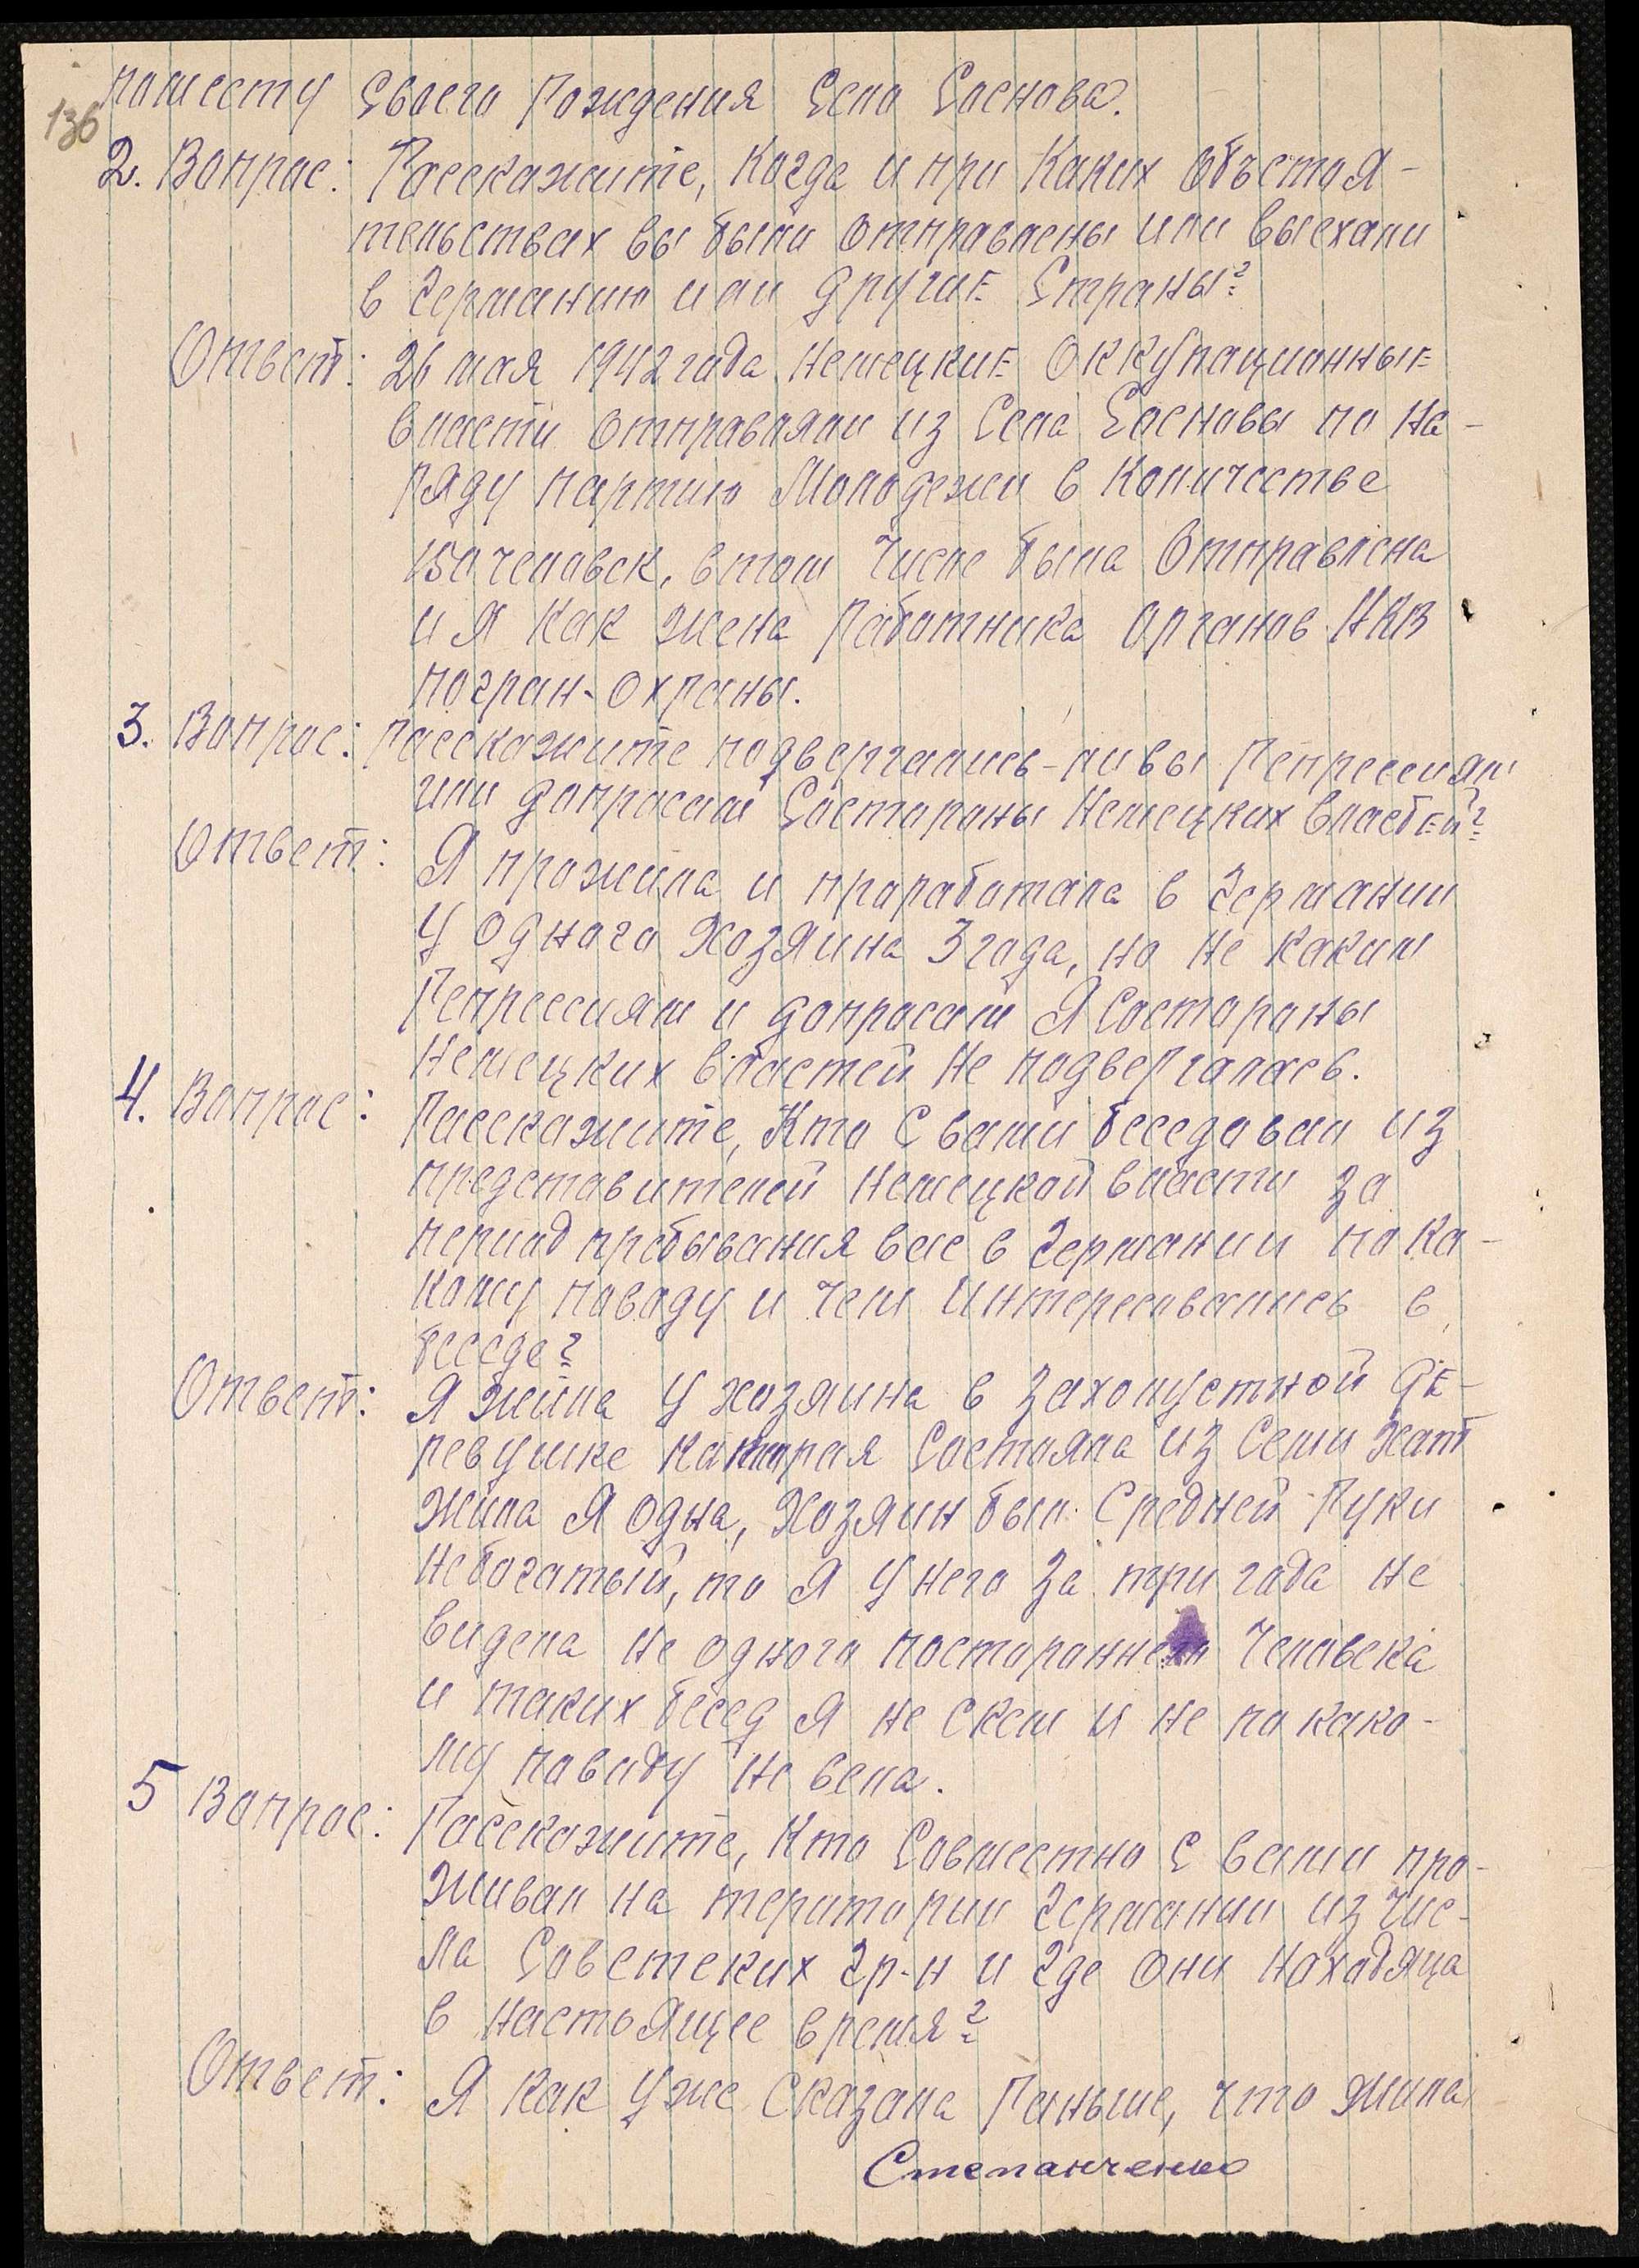 136
помеесту Своего Рождения Село Соснова.
2. Вопрос: Расскажите, Когда и при Каких Объстоя-
тельствах вы были отправлены или выехали
в Германию или другие Страны?
Ответ: 26 мая 1942 года Немецкие Оккупационные
власти отправляли из Села Сосновы по На-
Ряду партию Молодежи в Количестве
150 человек, в том Числе была Отправлена
и Я Как жена Работника Органов НКВ
погран-охраны.
3. Вопрос: Расскажите подвергались-ли вы Репрессиям
или допросам Состороны Немецких властей?
Ответ: Я прожила и проработала в Германии
У Одного Хозяина 3 года, но Не каким
Репрессиям и допросам Я Состороны
Немецких властей Не подвергалась.
4. Вопрос: Расскажите, Кто С вами беседовал из
представителей Немецкой власти за
период пребывания вас в Германии по Ка-
кому поводу и чем Интересовались в
беседе?
Ответ: Я жила У хозяина в Захолустной де-
ревушке которая Состояла из Семи Хатт
Жила Я одна, Хозяин был Средней Руки
Небогатый, то Я У него За три года Не
видела Не одного постораннего Человека
и таких бесед Я не Скем и не по како-
му поводу Не вела.
5 Вопрос: Расскажите, Кто Совместно С вами про-
живал на територии Германии из Чис-
ла Советских Гр-н и Где Они Находяца
в Настьящее время?
Ответ: Я Как Уже Сказала Раньше, Что жила
Степанченко